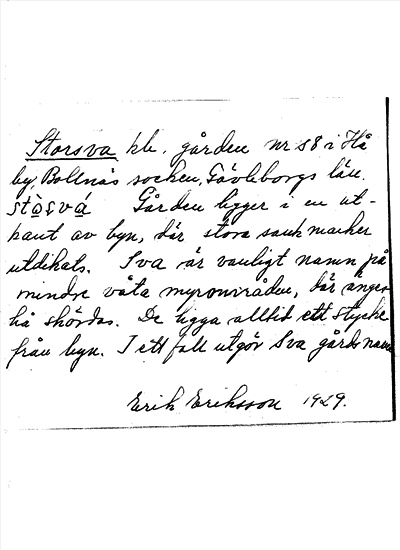 Storsva kb. gården nr 58 i Hå
by, Bollnäs socken, Gävleborgs län.
Gården ligger i en ut-
kant av byn, där stora sankmarker
utdikats. Sva är vanligt namn på
mindre våta myrområden, där änges-
hö skördas. De ligga alltid ett stycke
från byn. I ett fall utgör Sva gårdsnamn
Erik Eriksson 1929.